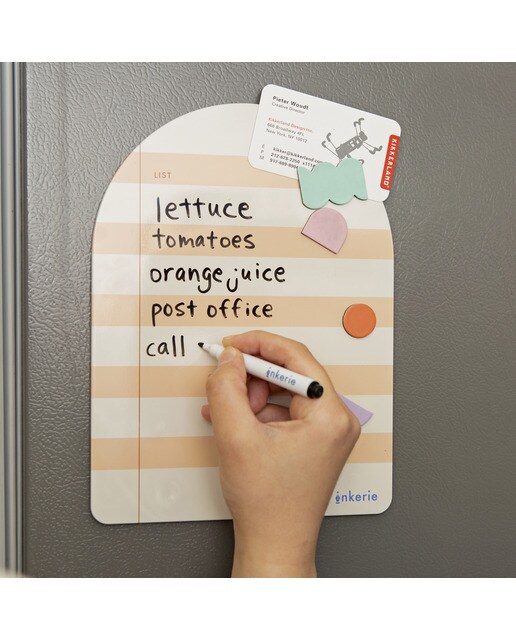 Pieter Woudt
Creative Director
Kikkerland Design Inc.
New York, NY 10013
KIKKERLAND
LIST
lettuce
tomatoes
orange juice
post office
call
inkerie
inkerie